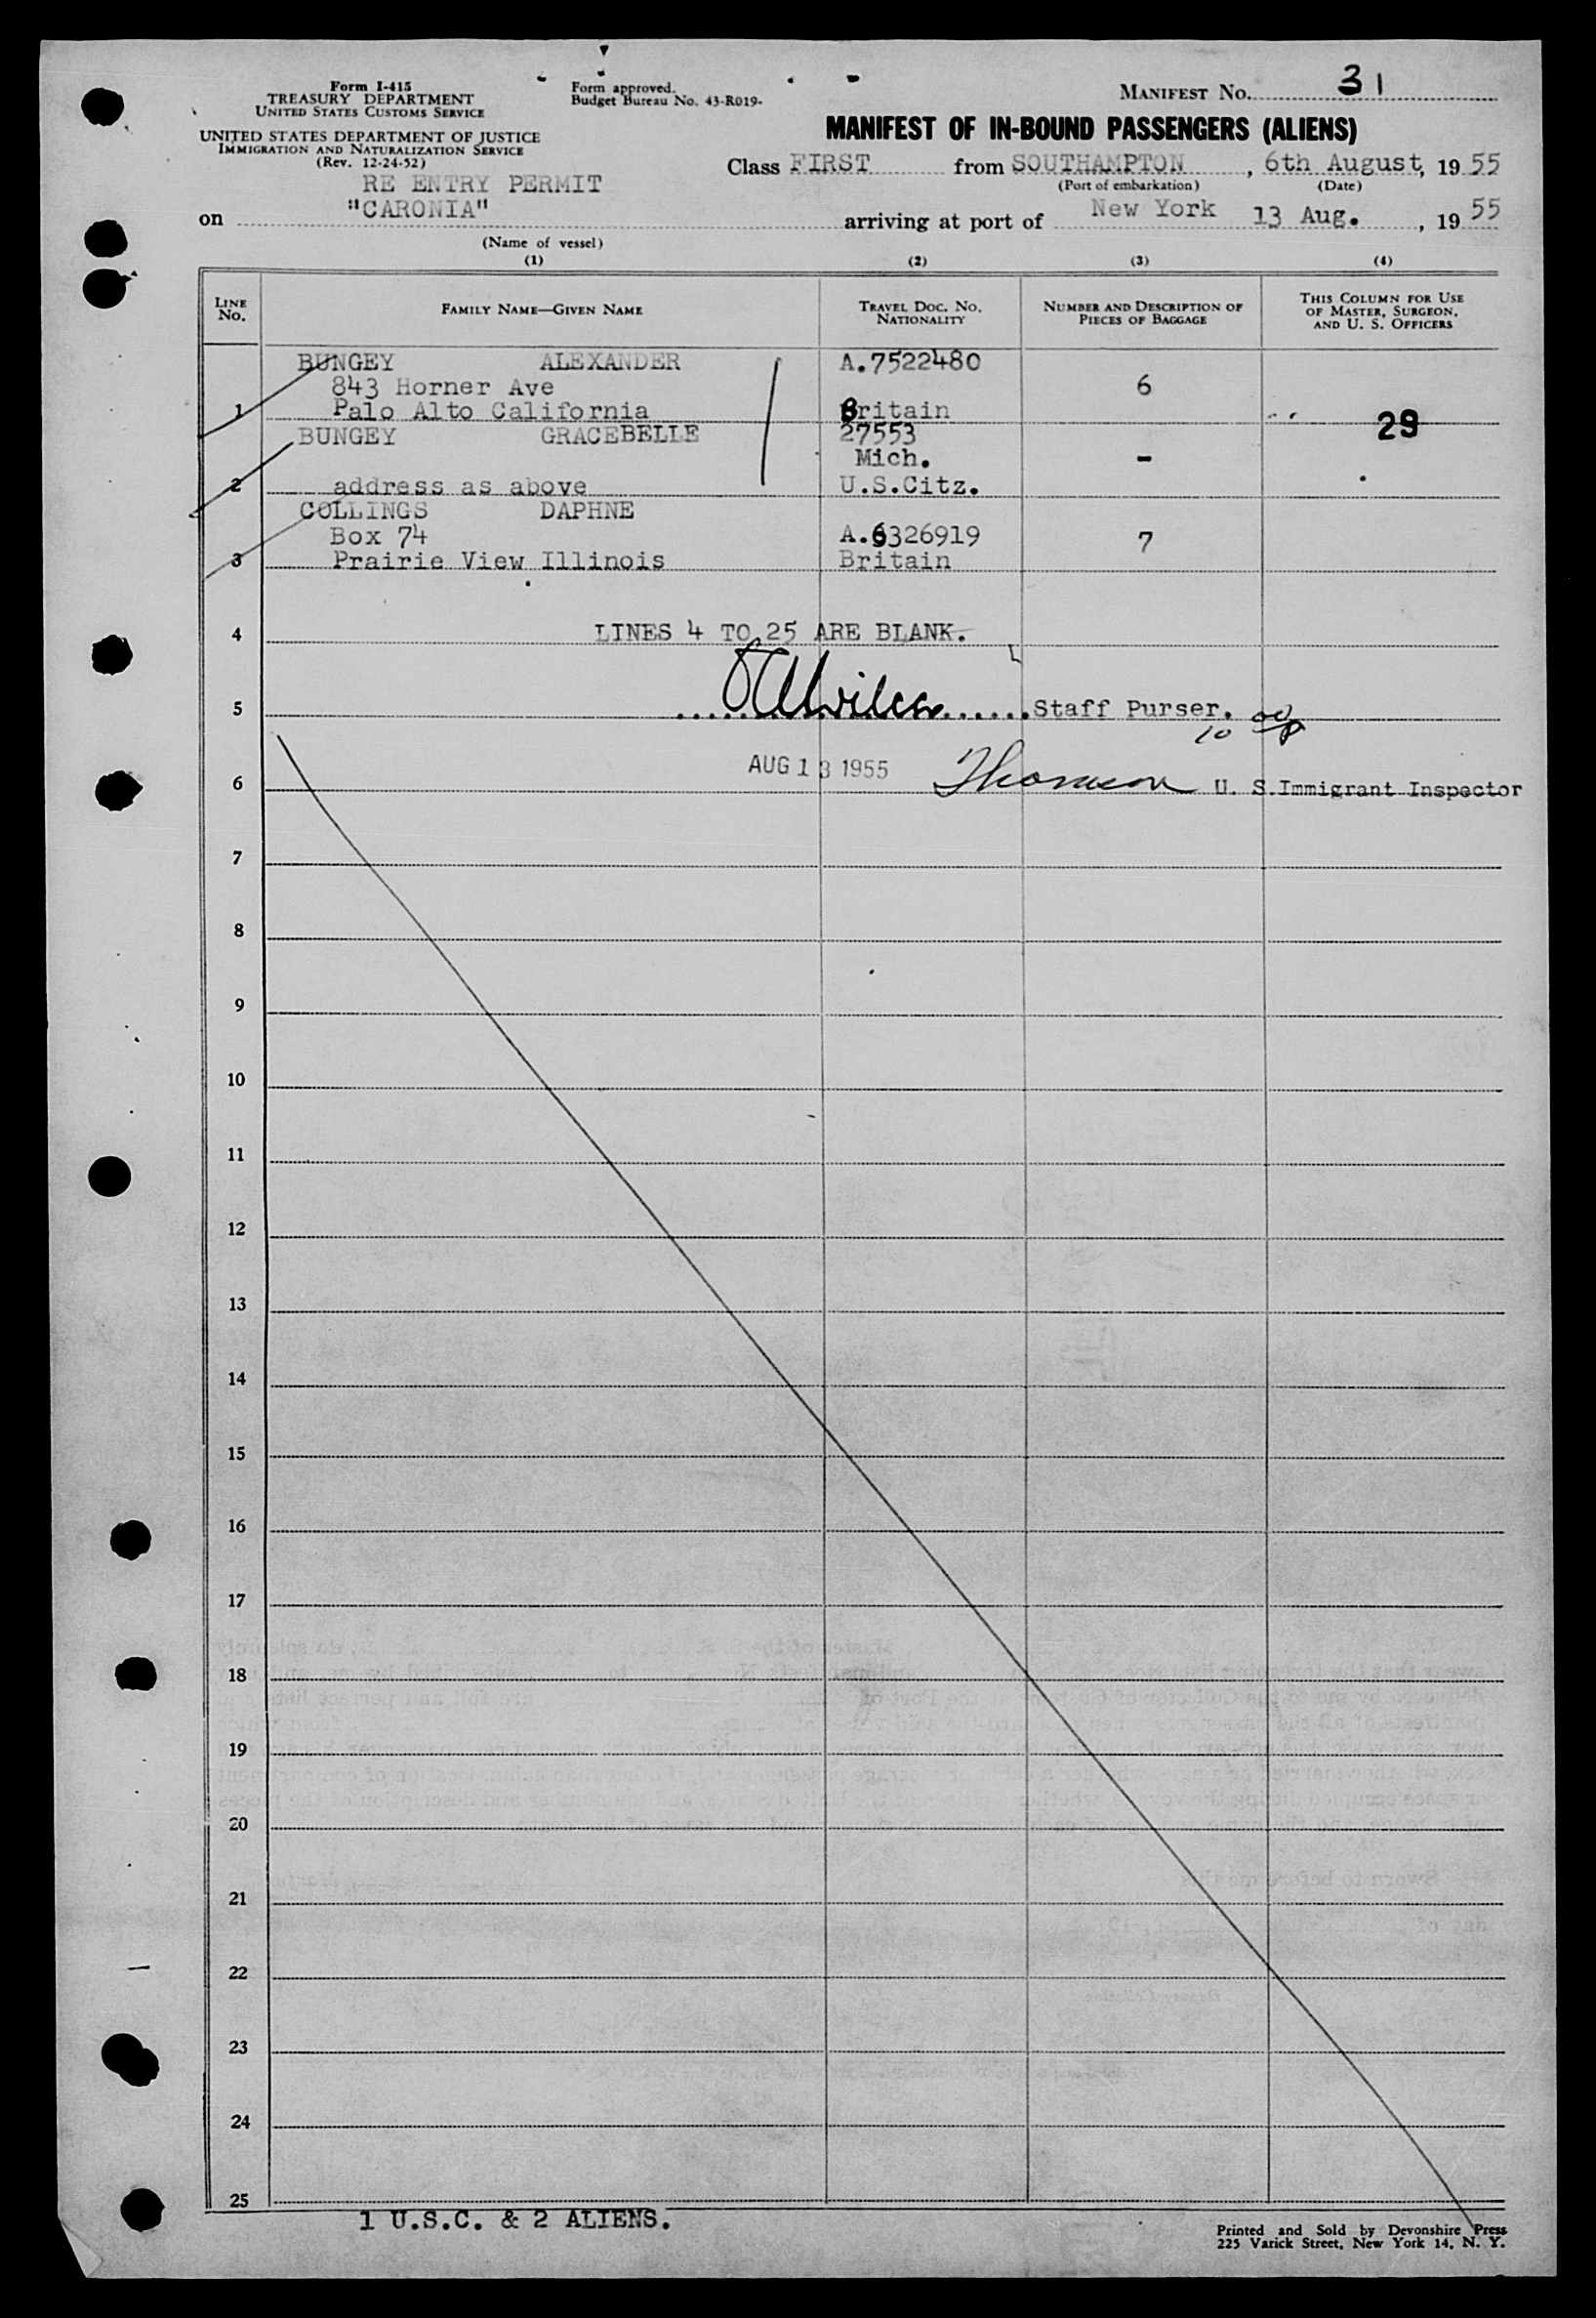 Form I-415
TREASURY DEPARTMENT
UNITED STATES CUSTOMS SERVICE
UNITED STATES DEPARTMENT OF JUSTICE
IMMIGRATION AND NATURALIZATION SERVICE
(Rev. 12-24-52)
Form approved.
Budget Bureau No. 43-R019-
MANIFEST NO. 31
MANIFEST OF IN-BOUND PASSENGERS (ALIENS)
Class FIRST from SOUTHAMPTON, 6th August, 1955
(Port of embarkation) (Date)
RE ENTRY PERMIT
on "CARONIA" arriving at port of New York 13 Aug., 1955
(Name of vessel)
(1) (2) (3) (4)
LINE No. FAMILY NAME—GIVEN NAME TRAVEL DOC. NO. NATIONALITY NUMBER AND DESCRIPTION OF PIECES OF BAGGAGE THIS COLUMN FOR USE OF MASTER, SURGEON, AND U. S. OFFICERS
BUNGEY ALEXANDER A.7522480
843 Horner Ave 6
1 Palo Alto California Britain
BUNGEY GRACEBELLE 27553 29
Mich. -
2 address as above U.S.Citz.
COLLINGS DAPHNE
Box 74 A.6326919 7
3 Prairie View Illinois Britain
4 LINES 4 TO 25 ARE BLANK.
5 Staff Purser.
10
6 AUG 13 1955 Thomson U. S. Immigrant Inspector
7
8
9
10
11
12
13
14
15
16
17
18
19
20
21
22
23
24
25
1 U.S.C. & 2 ALIENS.
Printed and Sold by Devonshire Press
225 Varick Street, New York 14, N. Y.